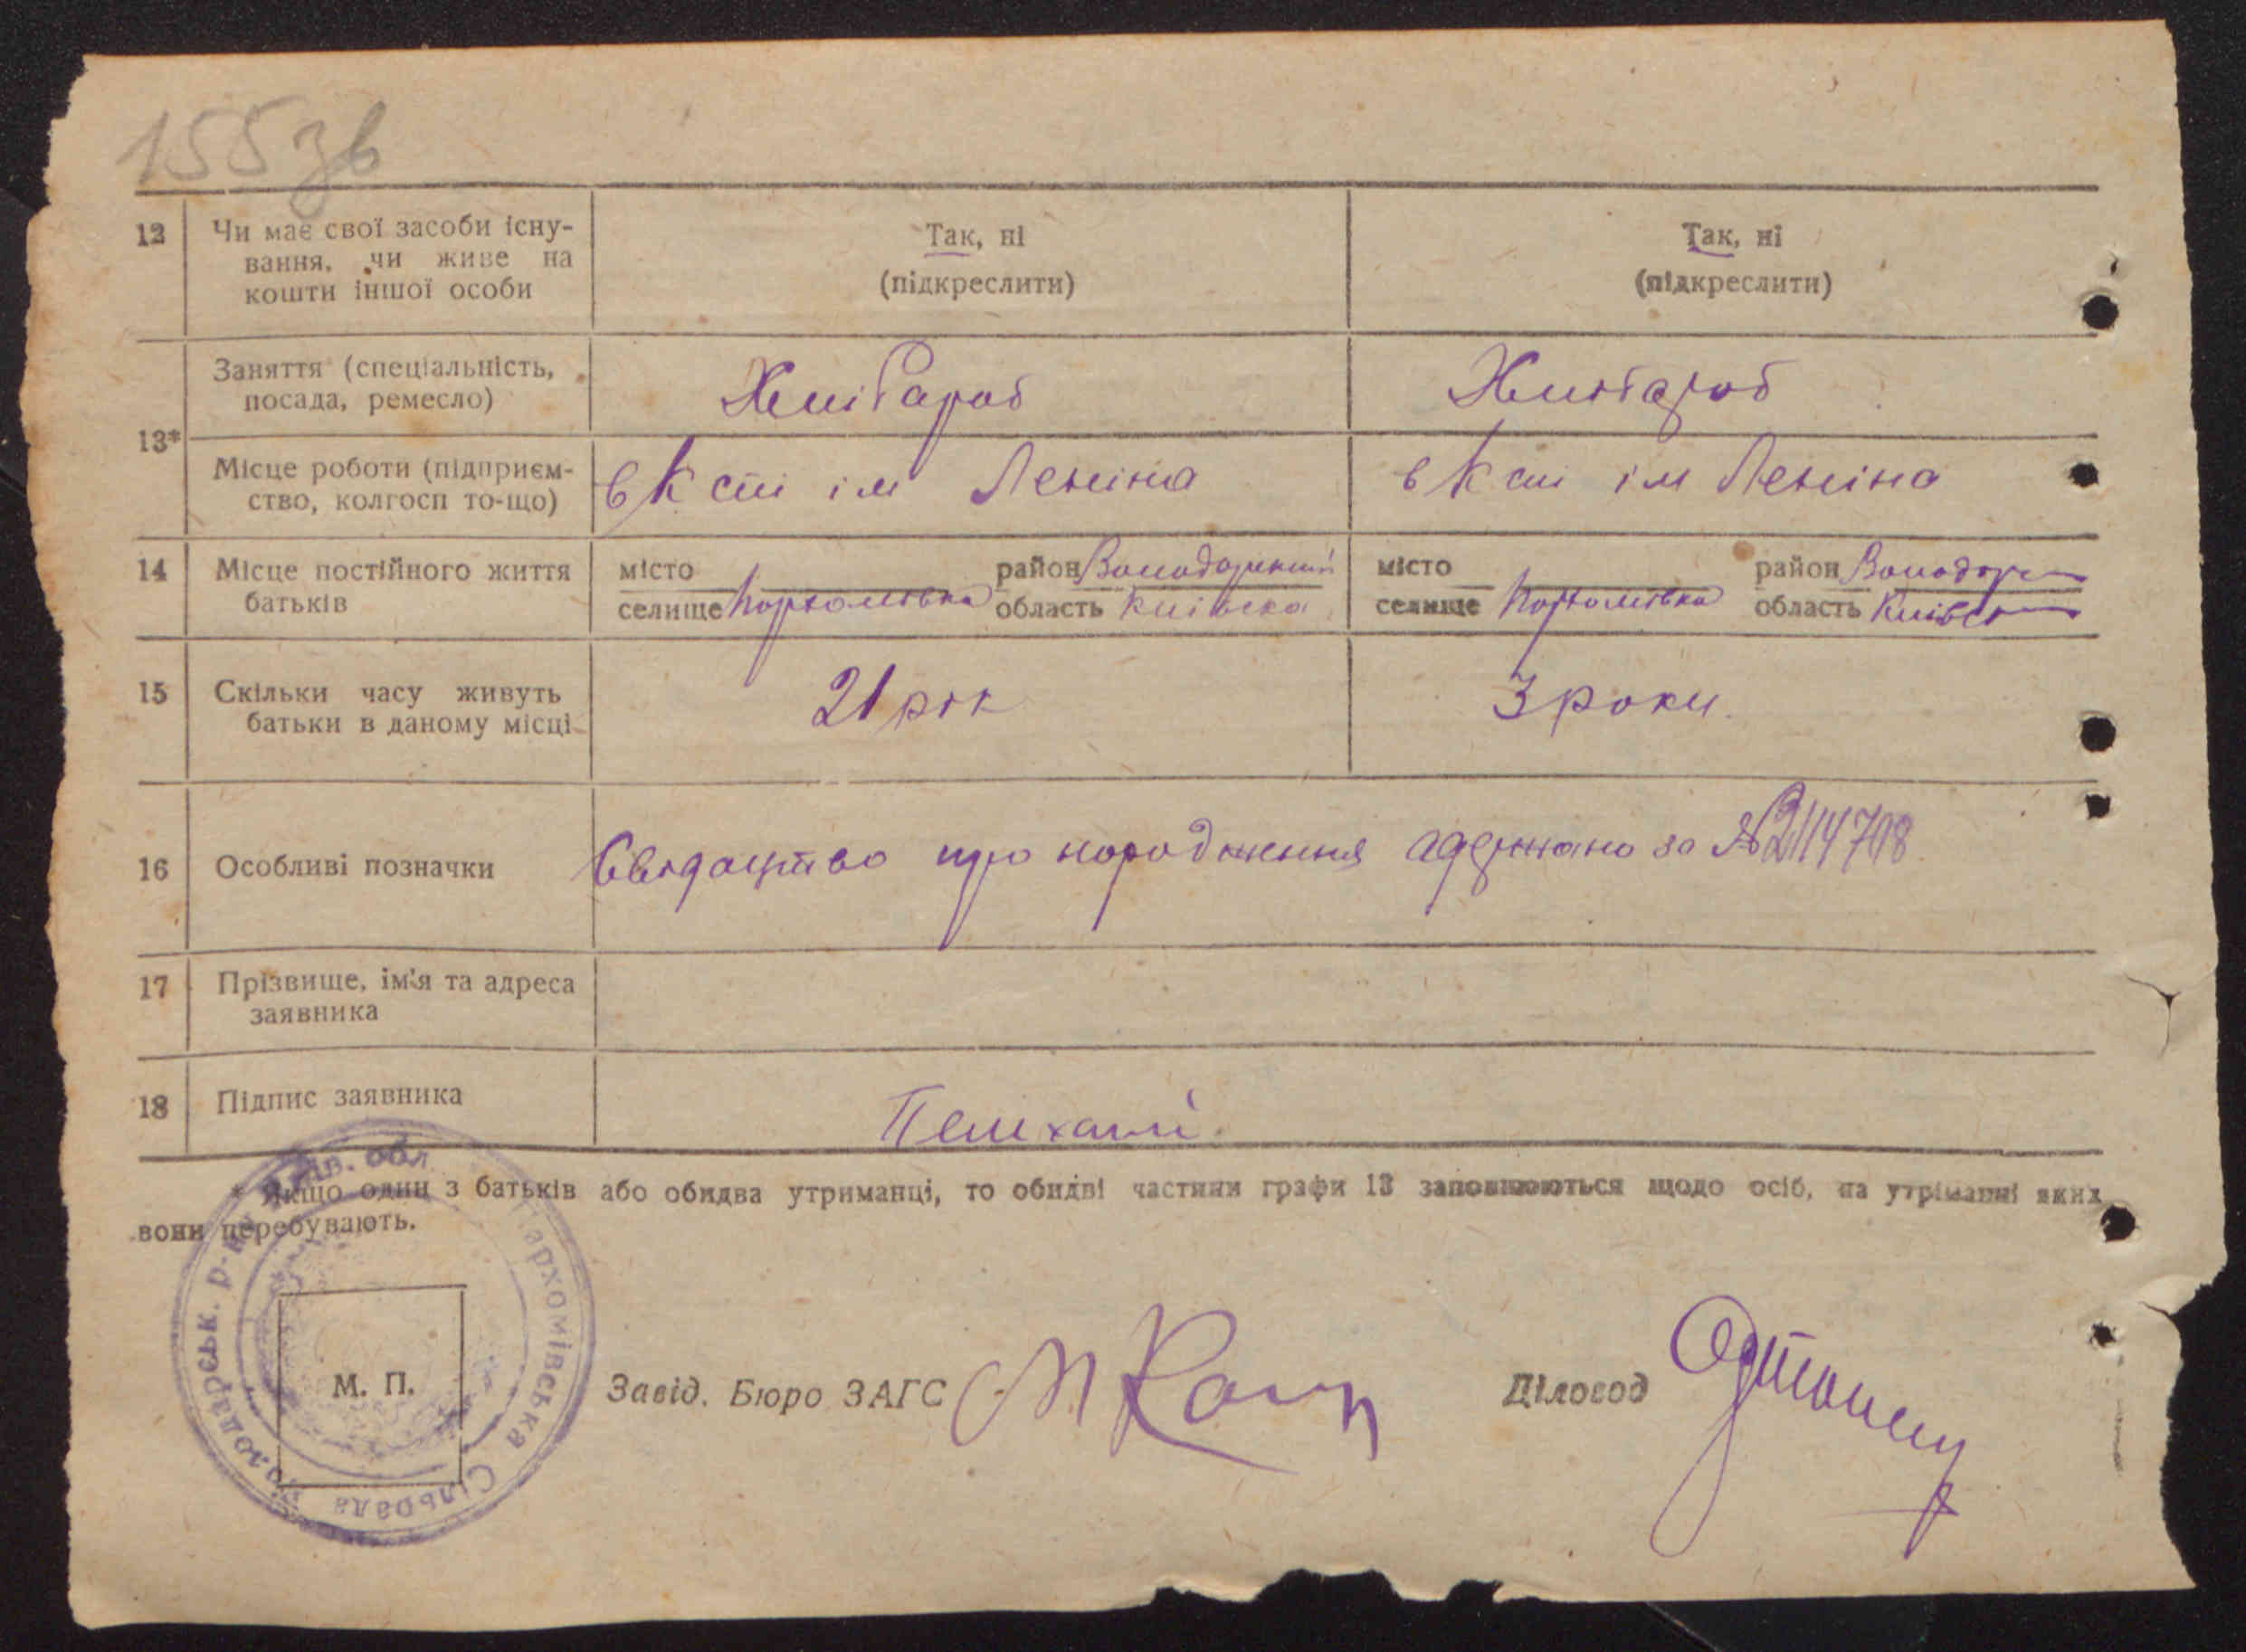 155 зв
12 Чи має свої засоби існу- Так, ні Так, ні
вання, чи живе на (підкреслити) (підкреслити)
кошти іншої особи
13* Заняття (спеціальність, Хлібароб Хлібароб
посада, ремесло)
Місце роботи (підприєм- в Ксті ім Леніна в Ксті ім Леніна
ство, колгосп то-що)
14 Місце постійного життя місто район Володарський місто район
батьків селище Пархомівка область Київська селище Пархомівка область
15 Скільки часу живуть 21 рік 3 роки.
батьки в даному місці
16 Особливі позначки Свідоцтво про народження одержано за №
17 Прізвище, ім'я та адреса
заявника
18 Підпис заявника
* Якщо один з батьків або обидва утриманці, то обидві частини графи 13 заповнюються щодо осіб, на утріманні яких
вони перебувають.
Пархомівська Сільрада Володарськ. р-ну Київ. обл
М. П. Завід. Бюро ЗАГС Діловод